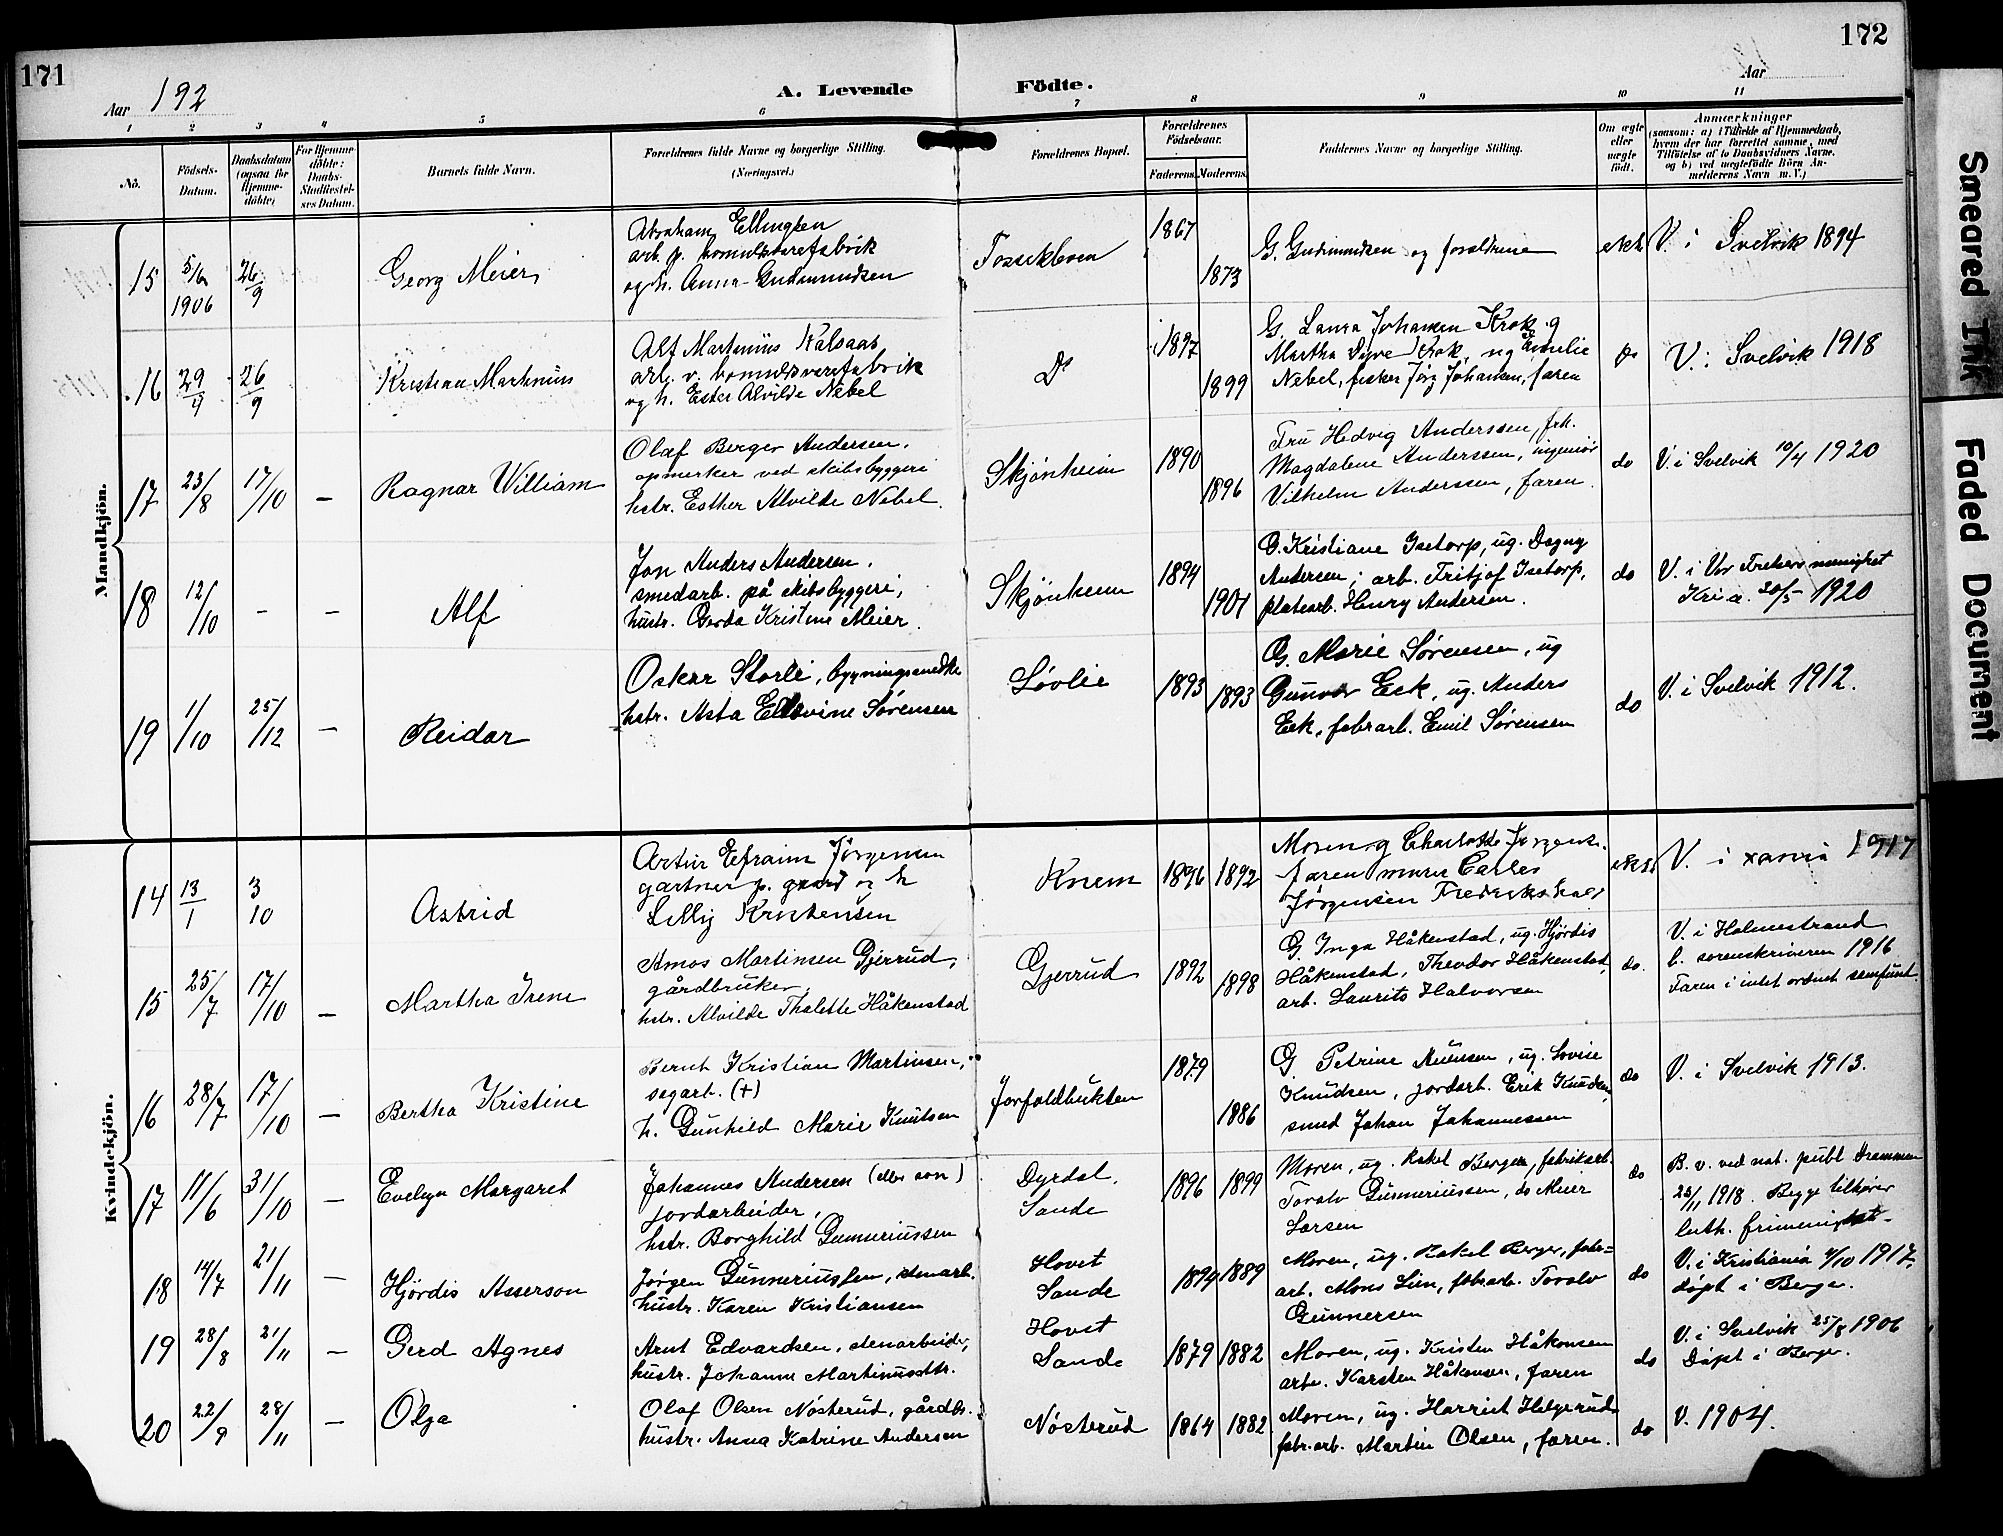 171
172
Aar 192
A. Levende
Födte.
Aar
1 2 3 4 5 6 7 8 9 10 11
No.
Födsels-
Datum.
Daabsdatum
(ogsaa for
Hjemme-
döbte)
For Hjemme-
döbte:
Daabs-
Stadfæstel-
ses Datum.
Barnets fulde Navn.
Forældrenes fulde Navne og borgerlige Stilling.
(Næringsvei.)
Forældrenes Bopæl.
Forældrenes
Födselsaar.
Faderens. Moderens.
Faddernes Navne og borgerlige Stilling.
Om ægte
eller
uægte
födt.
Anmærkninger
(saasom: a) i Tilfælde af Hjemmedaab,
hvem der har forrettet samme, med
Tilföielse af to Daabsvidners Navne.
og b) ved uægtefödte Börn An-
melderens Navn m. V.)
Mandkjön.
15 5/6 1906 26/9 Georg Meier
Abraham Ellingsen
arb. p. bomuldsvarefabrik
og h. Anna Gudmundsen
1867 1873
G. Gudmundsen og forældrene
ekte
V. i Svelvik 1894
16 29/4 26/9 Kristian Martinius
Alf Martinius Kalsaas
arb. v. bomuldsvarefabrik
og h. Ester Alvilde Nebel
Do
1897 1899
G. Laura Johansen Krok, g
Martha Dyve Krok, ug Amelie
Nebel, fisker Jörg Johansen, faren
do
V. i Svelvik 1918
17 23/8 17/10 – Ragnar William
Olaf Berger Andersen,
opmerker ved skibsbyggeri
hstr. Esther Alvilde Nebel.
Skjönheim
1890 1896
Fru Hedvig Anderssen, frk.
Magdalene Anderssen, ingeniör
Vilhelm Anderssen, faren
do
V. i Svelvik 10/4 1920
18 12/10 – – Alf
Jon Anders Andersen,
smedarb. på skibsbyggeri,
hustr. Gerda Kristine Meier.
Skjönheim
1894 1901
G. Kristiane Isetorp, ug. Dagny
Andersen; arb. Fritjof Isetorp,
platearb. Henry Andersen.
do
V. i Vor Frelsers menighet
Kria. 30/5 1920
19 1/10 25/12 – Reidar
Oskar Storli, bygningssnedker
hstr. Asta Edovine Sørensen
Løvlie
1893 1893
G. Marie Sørensen, ug
Gunvor Eek, ug. Anders
Eek, fabrarb. Emil Sørensen
do
V. i Svelvik 1912.
Kvindekjön.
14 13/1 3/10 Astrid
Artur Efraim Jørgensen
gartner p. gaard og h
Lilly Kristensen
Knem
1896 1892
Moren, g Charlotte Jørgens.
faren murer Carles
Jørgensen Fredrikshald
ekte
V. i Xania 1917
15 25/7 17/10 – Martha Irene
Amos Martinsen Gjerrud,
gårdbruker,
hstr. Alvilde Thalette Håkenstad
Gjerrud
1892 1898
G Inga Håkenstad, ug. Hjördis
Håkenstad, Theodor Håkenstad,
arb. Laurits Halvorsen
do.
V. i Holmestrand
b. sorenskriveren 1916
Faren i intet ordnet samfund.
16 28/7 17/10 – Bertha Kristine
Bernt Kristian Martinsen,
sagarb. (+)
h. Gunhild Marie Knutsen
Jorfaldbukten
1879 1886
G. Petrine Nilensen, ug. Lovise
Knudsen, jordarb. Erik Knudsen,
smed Johan Johannessen
do
V. i Svelvik 1913.
17 11/6 31/10 – Evelyn Margaret
Johannes Andersen (eller son)
jordarbeider,
hstr. Borghild Gunneriussen
Dyrdal,
Sande
1896 1899
Moren, ug. Rakel Berger, fabrikarb.
Torolv Gunneriussen, do Meier
Larsen
do
B. v. ved not. publ Drammen
23/11 1918. Begge tilhører
luth. frimenighet.
18 14/7 21/11 – Hjördis Asserson
Jørgen Gunneriussen, stenarb.
hustr. Karen Kristiansen
Hovet
Sande
1894 1889
Moren, ug. Rakel Berger, fabr=
arb. Mons Lien, fabrarb. Torolv
Gunnersen
do
V. i Kristiania 4/10 1917.
døpt i Berger.
19 28/8 21/11 – Gerd Agnes
Arnt Edvardsen, stenarbeider,
hustr. Johanne Martinusdtr.
Hovet
Sande
1879 1882
Moren, ug. Kristen Håkonsen
arb. Karsten Håkonsen, faren
do
V. i Svelvik 25/8 1906
Døpt i Berger.
20 22/9 28/11 – Olga
Olaf Olsen Nøsterud, gårdbr.
hustr. Anna Katrine Andersen
Nøsterud
1864 1882
Moren, ug. Harriet Helgerud
fabr.arb. Martin Olsen, faren.
do
V. 1904.
Smeared Ink
Faded Document